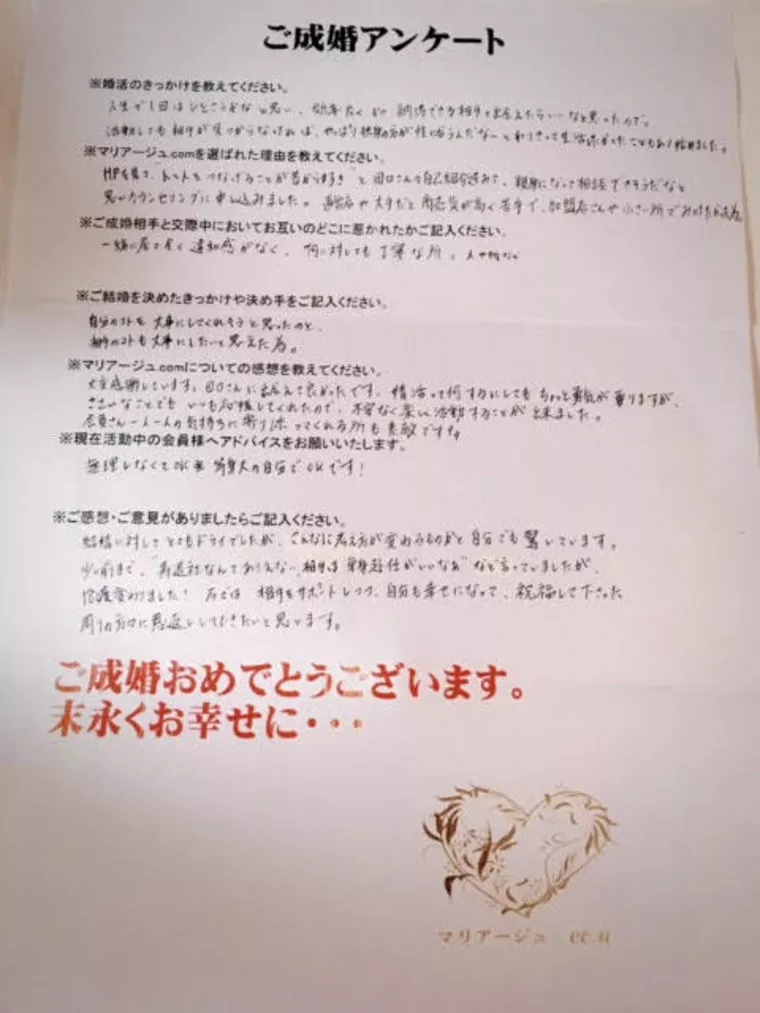 ご成婚アンケート
※婚活のきっかけを教えてください。
人生で1回は と思い、 効率 良く 納得できる相手と出会えたらいいなと思ったので。
活動しても相手が見つからなければ、やっぱり独身の方が性に合うんだな と わりきって生活 こともあり始めました。
※マリアージュ.comを選ばれた理由を教えてください。
HPを見て、 "トットをつなげることが昔から好き" と 田口さんの自己紹介を読みて、親身になって相談できそうだなと
思いカウンセリングに申し込みました。 や大手だと 商売気が高く苦手で、加盟店さんや小さい所で
※ご成婚相手と交際中においてお互いのどこに惹かれたかご記入ください。
一緒に居て全く違和感がなく、何に対しても丁寧な所。
※ご結婚を決めたきっかけや決め手をご記入ください。
自分のコトを大事にしてくれそうと思ったのと、
相手のコトも大事にしたいと思えた為。
※マリアージュ.comについての感想を教えてください。
大変感謝しています。田口さんに出会えて良かったです。婚活って何するにしてもちょっと勇気が要りますが、
ささいなことでもいつも応援してくれたので、不安なく楽しく活動することが出来ました。
会員さん一人一人の気持ちに寄り添ってくれる所も素敵です
※現在活動中の会員様へアドバイスをお願いいたします。
無理しなくてOK 等身大の自分でOKです!
※ご感想・ご意見がありましたらご記入ください。
結婚に対してとてもドライでしたが、こんなに考え方が変わるものかと自分でも驚いています。
少し前まで、"寿退社なんてありえない、相手は単身赴任がいいなぁ" など言っていましたが、
変わりました! 相手をサポートしつつ、自分も幸せになって、祝福して下さった
周りの方々に恩返ししていきたいと思います。
ご成婚おめでとうございます。
末永くお幸せに・・・
マリアージュ